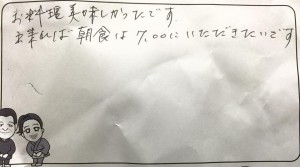 お料理美味しかったです
出来れば朝食は7:00にいただきたいです